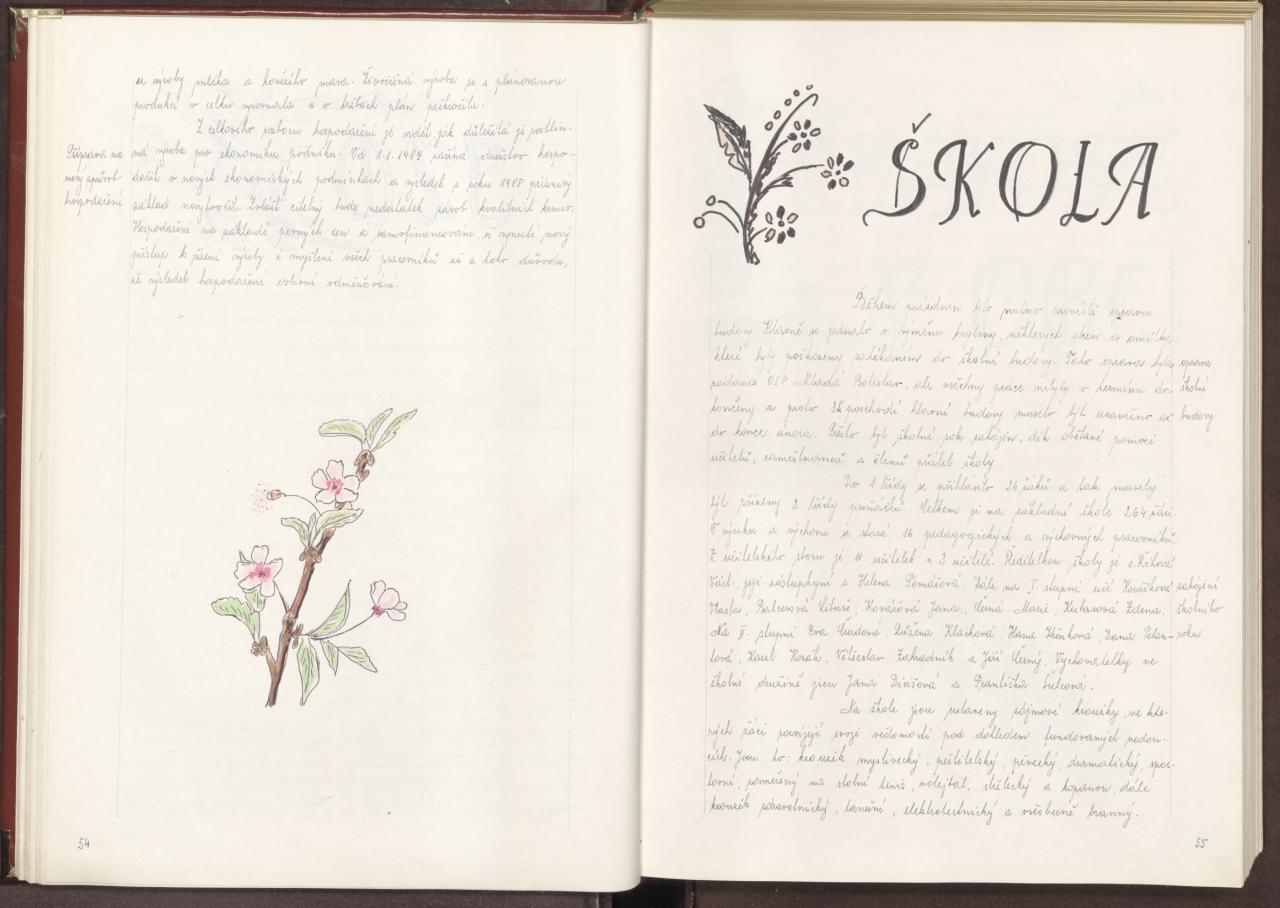 u výroby mléka a hovězího masa. Živočišná výroba se s plánovanou
produkcí v celku vyrovnala a v tržbách plán překročila.
Z celkového rozboru hospodaření je vidět jak důležitá je rostlin-
Příprava na
nový způsob
hospodaření
ná výroba pro ekonomiku podniku. Od 1.1.1989 začíná družstvo hospo-
dařit v nových ekonomických podmínkách a výsledek z roku 1988 příznivý
základ nevytvořil. Zvlášť citelný bude nedostatek zásob kvalitních krmiv.
Hospodaření na základě pevných cen a samofinancování, si vynutí nový
přístup k řízení výroby i myšlení všech pracovníků už z toho důvodu,
že výsledek hospodaření ovlivní odměňování.
54
ŠKOLA
Během prázdnin bylo nutno provésti opravu
budovy. Hlavně se jednalo o výměnu krytiny, některých oken a omítky,
které byly poškozeny zatékáním do školní budovy. Tato oprava byla
oprava
školní
budovy
zadána OSP Mladá Boleslav, ale všechny práce nebyly v termínu do-
končeny a proto poschodí hlavní budovy muselo být uzavřeno až
do konce února. Přesto byl školní rok zahájen, dík obětavé pomoci
učitelů, zaměstnanců a členů přátel školy.
Do 1 třídy se přihlásilo 36 žáků a tak musely
být zřízeny 2 třídy prvňáčků. Celkem je na základní škole 264 žáci.
O výuku a výchovu se stará 16 pedagogických a výchovných pracovníků.
Z učitelského sboru je 11 učitelek a 3 učitelé. Ředitelkou školy je s. Říhová
Věra, její zástupkyní s. Helena Tomášová. Dále na I. stupni učí Koučková
zahájení
školního
roku
Vlasta, Balcarová Libuše, Kovářová Jana, Černá Marie, Kutasová Zdena.
Na II. stupni Eva Čurdová, Růžena Klacková, Hana Vršnková, Dana Pelan-
tová, Karel Kozák, Vítězslav Zahradník a Jiří Černý. Vychovatelky ve
školní družině jsou Jana Divišová a Františka Šulcová.
Na škole jsou ustaveny zájmové kroužky, ve kte-
rých žáci rozvíjejí svoje vědomosti pod dohledem fundovaných vedou-
cích. Jsou to: kroužek myslivecký, pěstitelský, pěvecký, dramatický, spor-
tovní, zaměřený na stolní tenis, volejbal, střelecký a kopanou, dále
kroužek zdravotnický, taneční, elektrotechnický a všeobecně branný.
55